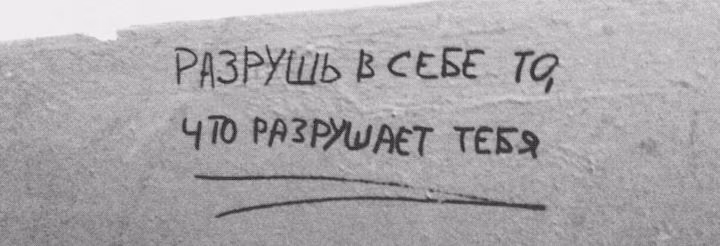 РАЗРУШЬ В СЕБЕ ТО,
ЧТО РАЗРУШАЕТ ТЕБЯ